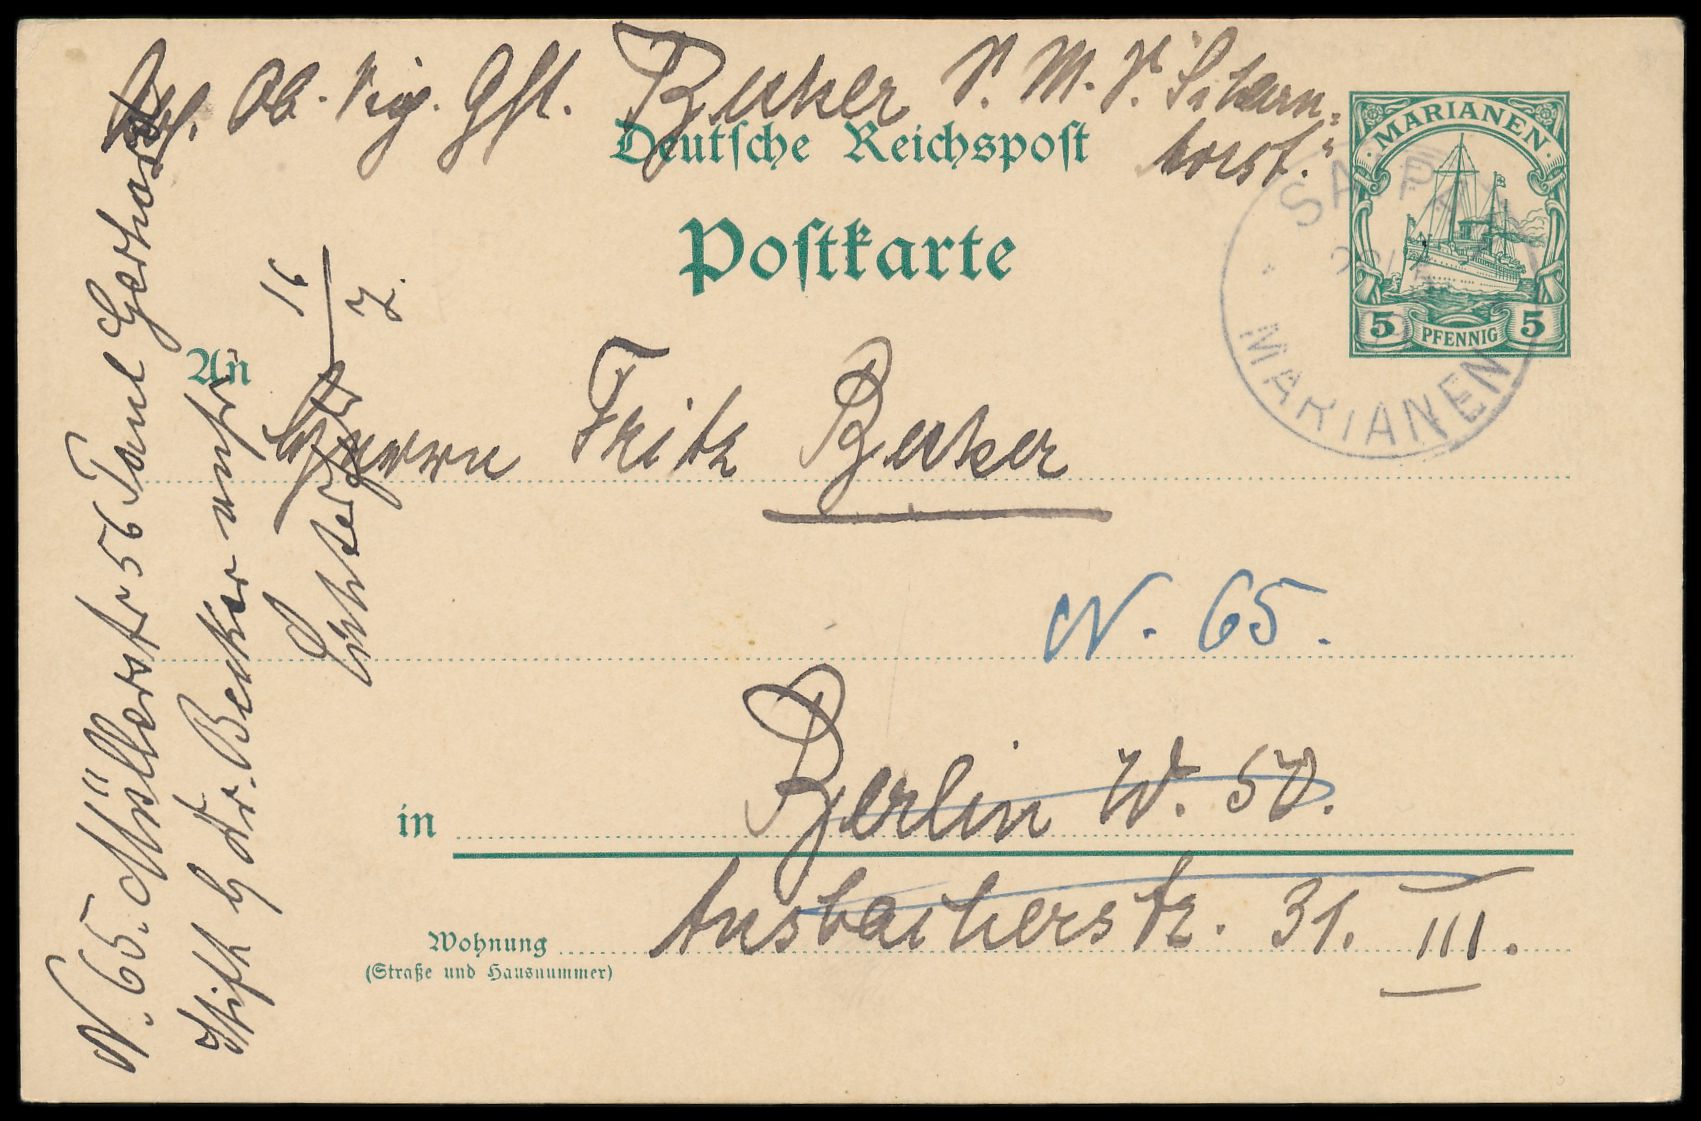 Abs. Ob. Sig. Gst. Becker S. M. S. "Scharn-
horst."
Deutsche Reichspost
Postkarte
MARIANEN
5 PFENNIG 5
SAIPAN
MARIANEN
An
Herrn Fritz Becker
N. 65.
in Berlin W. 50.
Wohnung Ansbacherstr. 31. III.
(Straße und Hausnummer)
N. 65. Müllerstr 56 Paul Gerhardt
Stift b Dr. Becker
16
7.